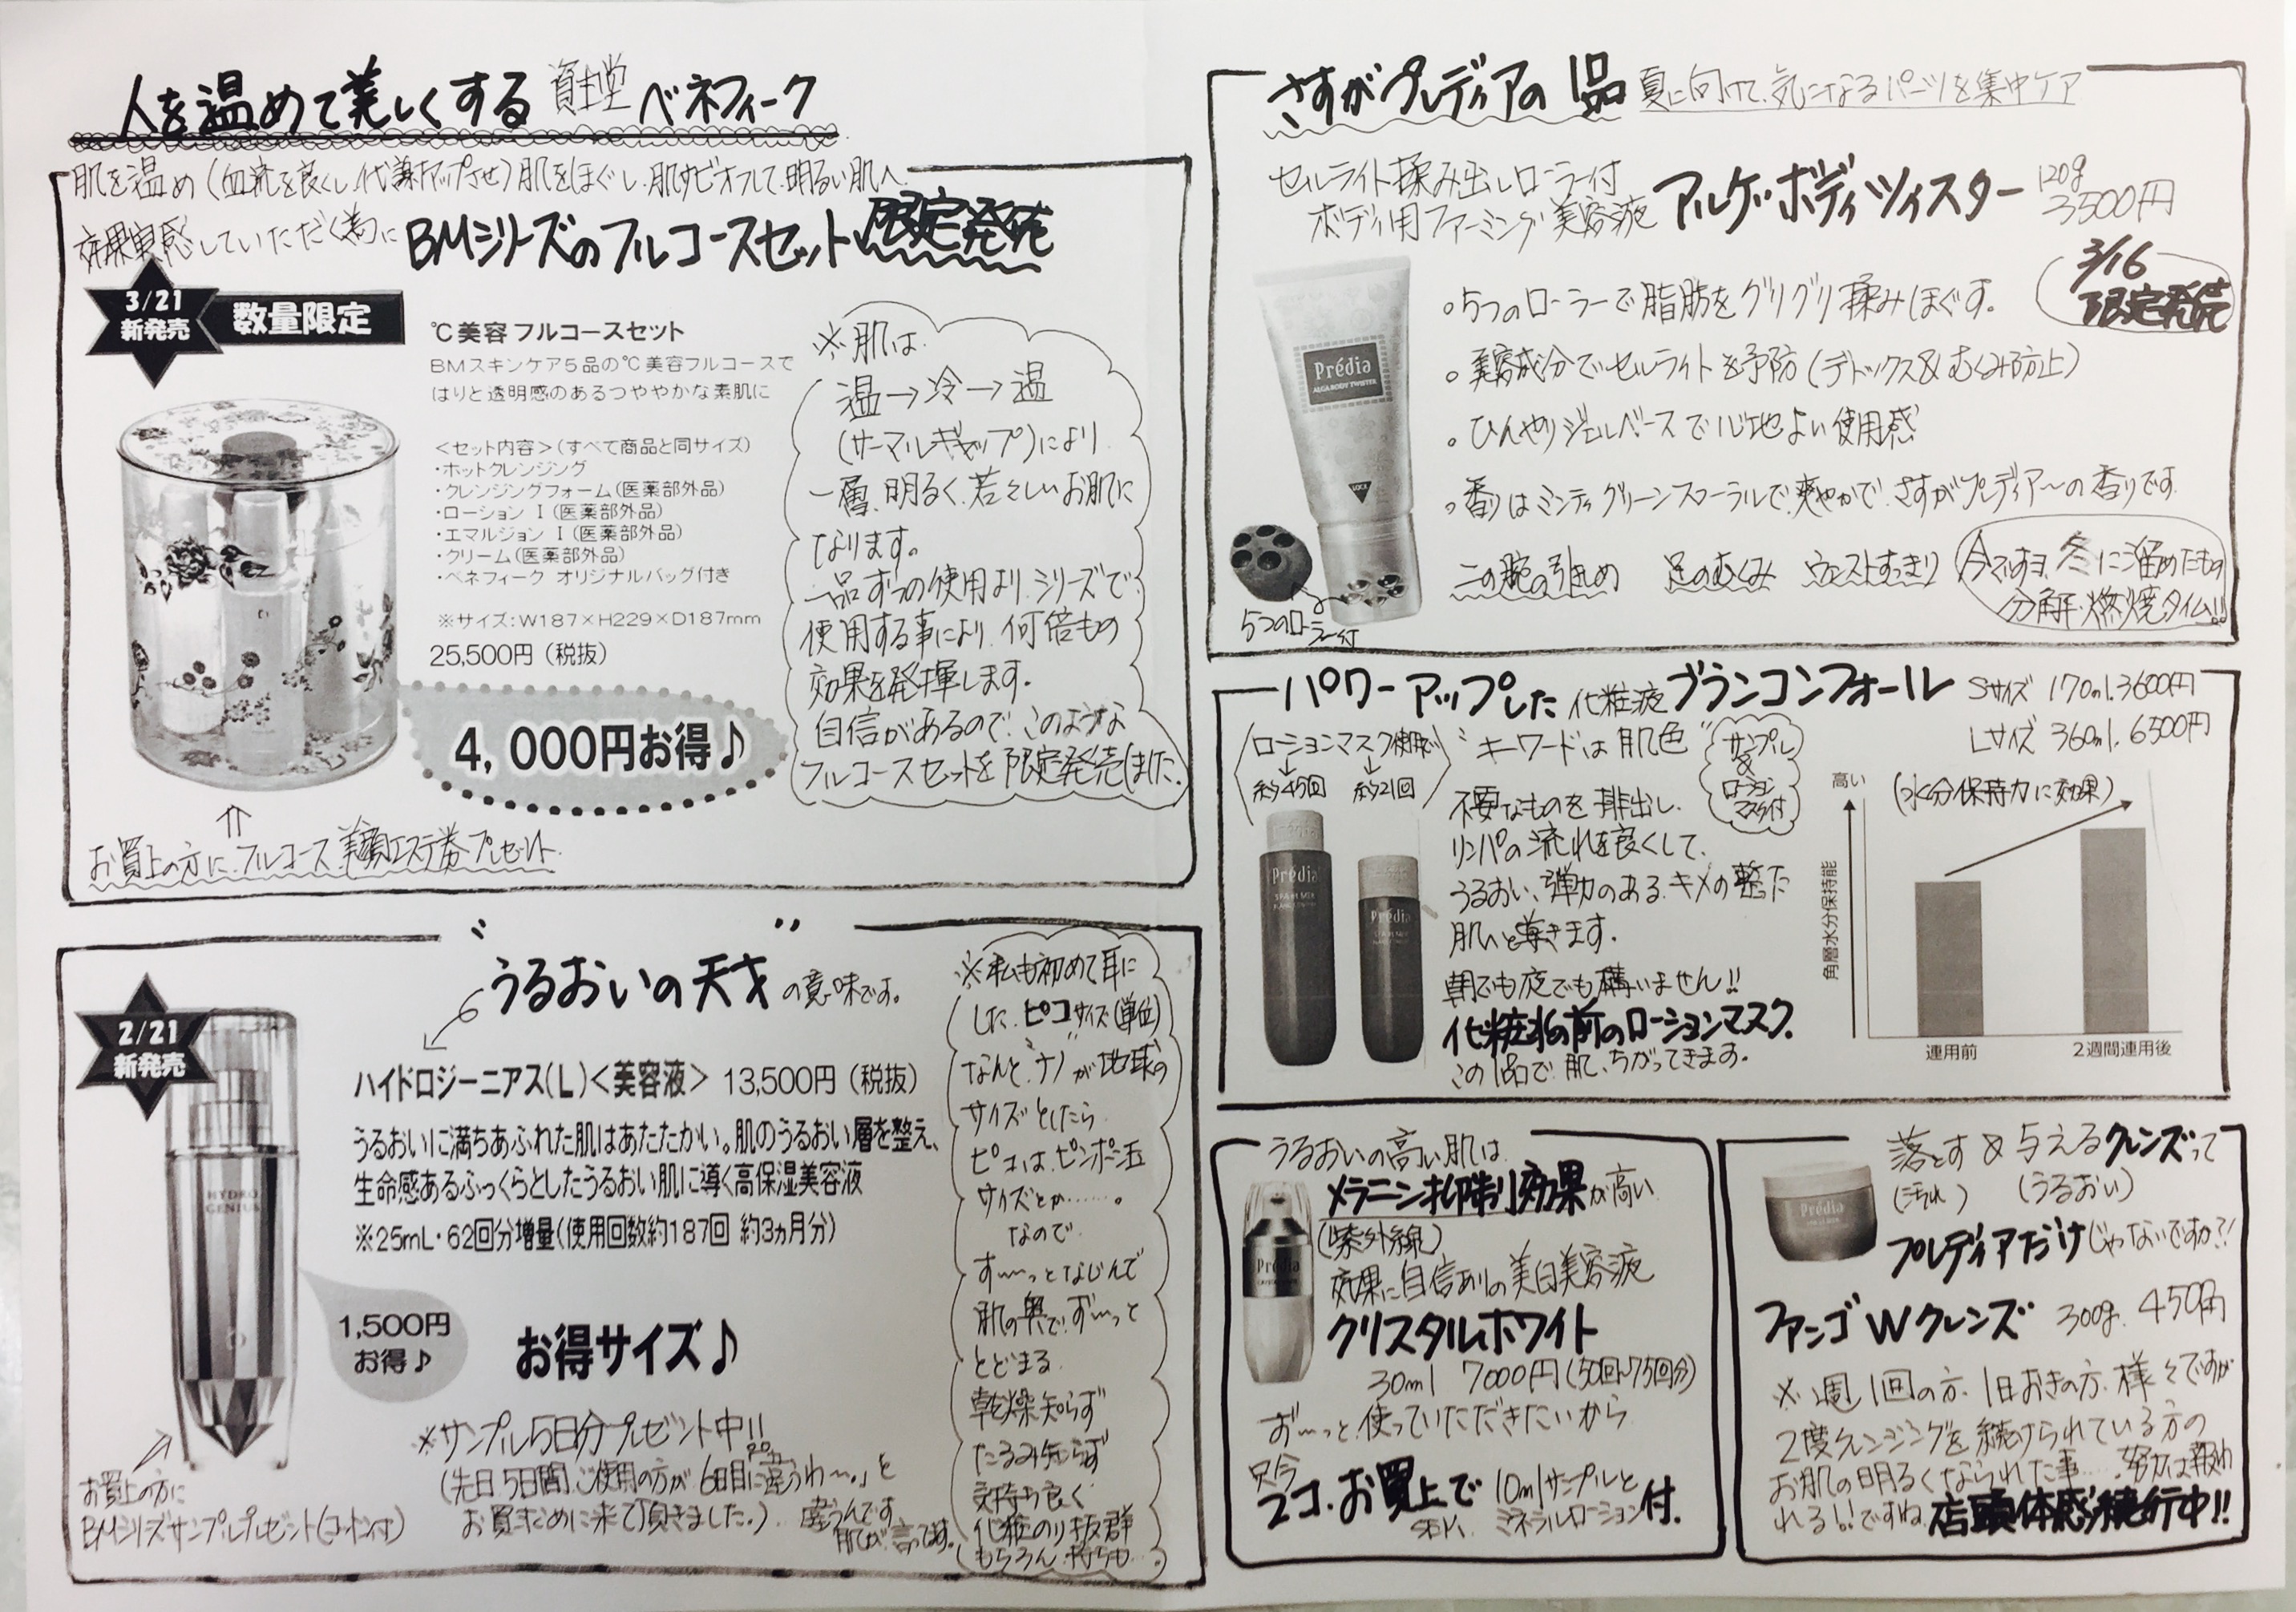 人を温めて美しくする 資生堂 ベネフィーク
肌を温め(血流を良くし、代謝アップさせ)肌をほぐし、肌サビオフして、明るい肌へ
効果実感していただく為に BMシリーズのフルコースセット限定発売
3/21
新発売
数量限定
℃美容フルコースセット
BMスキンケア5品の℃美容フルコースで
はりと透明感のあるつややかな素肌に
<セット内容>(すべて商品と同サイズ)
・ホットクレンジング
・クレンジングフォーム(医薬部外品)
・ローション Ⅰ(医薬部外品)
・エマルジョン Ⅰ(医薬部外品)
・クリーム(医薬部外品)
・ベネフィーク オリジナルバッグ付き
※サイズ:W187×H229×D187mm
25,500円(税抜)
4,000円お得♪
※肌は、
温→冷→温
(サーマルギャップ)により
一層、明るく、若々しいお肌に
なります。
一品ずつの使用より、シリーズで
使用する事により、何倍もの
効果を発揮します。
自信があるので、このような
フルコースセットを限定発売しました。
お買上の方に、フルコース美顔エステ券プレゼント
"うるおいの天才"の意味です。
2/21
新発売
ハイドロジーニアス(L)<美容液> 13,500円(税抜)
うるおいに満ちあふれた肌はあたたかい。肌のうるおい層を整え、
生命感あるふっくらとしたうるおい肌に導く高保湿美容液
※25mL・62回分増量(使用回数約187回 約3ヵ月分)
HYDRO
GENIUS
1,500円
お得♪
お得サイズ♪
※サンプル5日分プレゼント中!!
(先日、5日間、ご使用の方が、6日目に「違うわ〜。」と
お買すために来て頂きました。) 違うんです
肌が、言ってます。
お買上の方に
BMシリーズサンプルプレゼント(コットン付)
※私も初めて耳に
した、ピコサイズ(単位)
なんと、"ナノ"が地球の
サイズとしたら
ピコは、ピンポン玉
サイズとか……。
なので
す〜っとなじんで
肌の奥で、ず〜っと
とどまる。
乾燥知らず
たるみ知らず
気持ち良く
化粧のり抜群
もちろん、持ちも…。
さすがプレディアの1品 夏に向けて、気になるパーツを集中ケア
セルライト揉み出しローラー付
ボディ用ファーミング美容液 アルゲ・ボディツイスター 120g
3500円
3/16
限定発売
Prédia
ALGA BODY TWISTER
5つのローラー付
。5つのローラーで脂肪をグリグリ揉みほぐす。
。美容成分でセルライトを予防(デトックス&むくみ防止)
。ひんやりジェルベースで心地よい使用感
。香りはミンティグリーンフローラルで、爽やかで、さすがプレディア〜の香りです。
二の腕の引きしめ 足のむくみ ウエストすっきり
今ですヨ、冬に溜めたもの
分解・燃焼タイム!!
パワーアップした 化粧液 ブランコンフォール Sサイズ 170ml.3600円
Lサイズ 360ml.6500円
(ローションマスク使用で)
約45回 約21回
"キーワードは肌色"
サンプル
&
ローション
マスク付
Prédia
Prédia
不要なものを排出し、
リンパの流れを良くして、
うるおい、弾力のある、キメの整った
肌へと導きます。
朝でも夜でも構いません!!
化粧水の前のローションマスク。
この1品で、肌、ちがってきます。
高い
(水分保持力に効果)
角層水分保持能
連用前 2週間連用後
うるおいの高い肌は、
メラニン抑制効果が高い
(紫外線)
効果に自信ありの美白美容液
クリスタルホワイト
30ml 7000円(50回〜75回分)
Prédia
ず〜っと、使っていただきたいから
只今
2コ、お買上で 10mlサンプルと
ミネラルローション付。
落とす & 与えるクレンズって
(汚れ) (うるおい)
プレディアだけじゃないですか?!
Prédia
ファンゴWクレンズ 300g. 4500円
※週1回の方、1日おきの方、様々ですが
2度クレンジングを続けられている方の
お肌の明るくなられた事……努力は報わ
れる!!ですね。店頭体感続行中!!